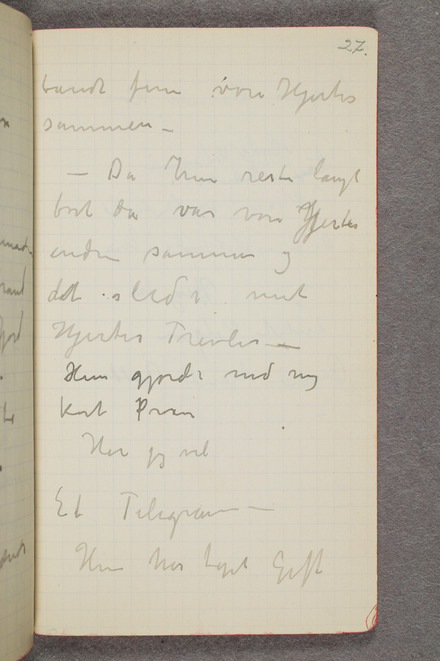 27.
bandt fun vore Hjerter
sammen –
– Da Hun reste langt
bort da var vore Hjerter
endnu sammen og
det sled i mit
Hjertes Trevler –
Hun gjorde med mig
kort Proses
Har jeg vel
Et Telegram –
Hun har taget Gift